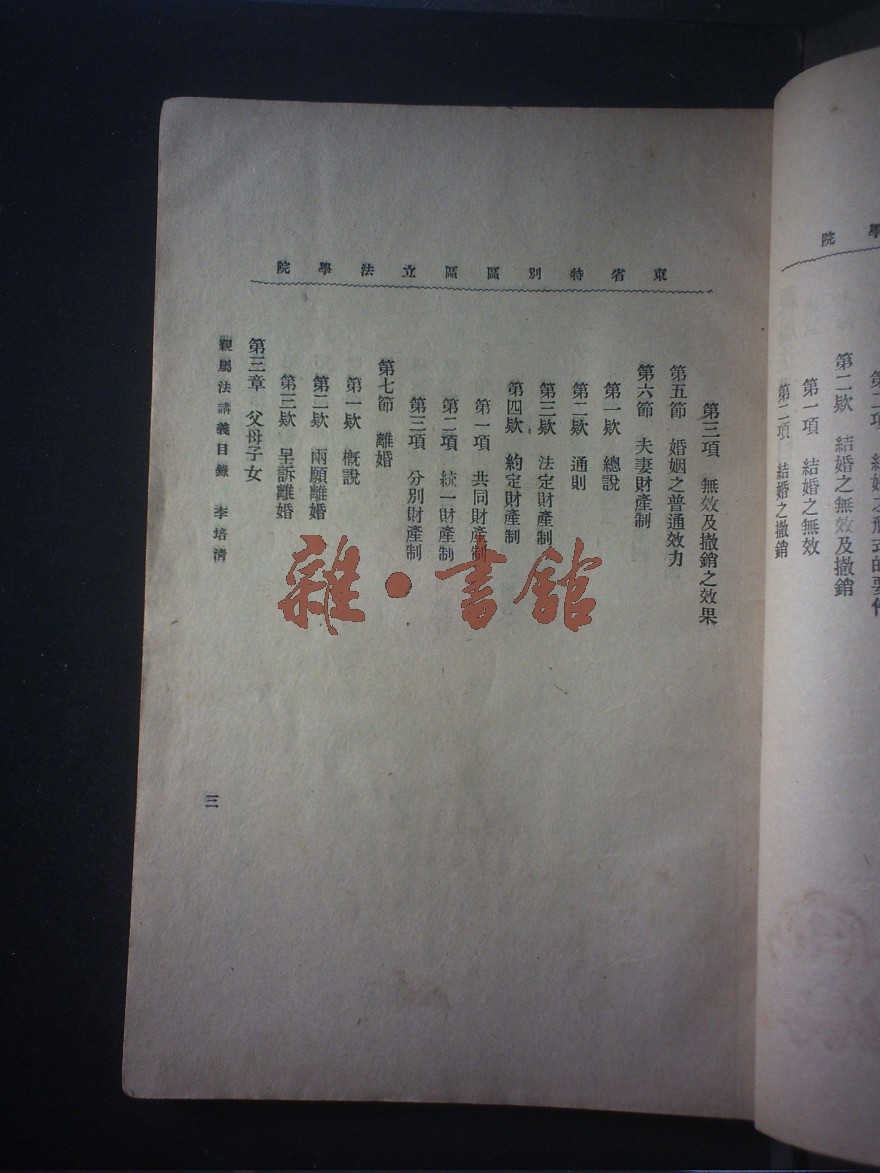 學院
第二項　結婚之形式的要件
第二欵　結婚之無效及撤銷
第一項　結婚之無效
第二項　結婚之撤銷
東省特別區區立法學院
第三項　無效及撤銷之效果
第五節　婚姻之普通效力
第六節　夫妻財產制
第一欵　總說
第二欵　通則
第三欵　法定財產制
第四欵　約定財產制
第一項　共同財產制
第二項　統一財產制
第三項　分別財產制
第七節　離婚
第一欵　概說
第二欵　兩願離婚
第三欵　呈訴離婚
第三章　父母子女
親屬法講義目錄　李培清
三
雜·書館